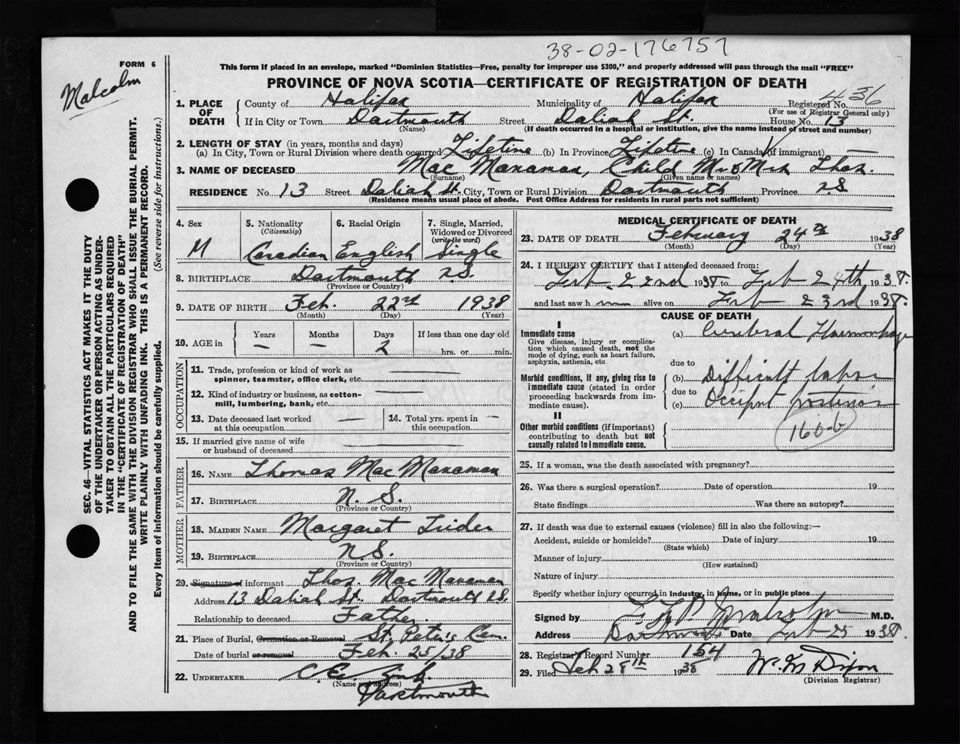 38-02-176757
FORM 6
Malcolm
This form if placed in an envelope, marked "Dominion Statistics—Free, penalty for improper use $300," and properly addressed will pass through the mail "FREE"
PROVINCE OF NOVA SCOTIA—CERTIFICATE OF REGISTRATION OF DEATH
SEC. 46—VITAL STATISTICS ACT MAKES IT THE DUTY
OF THE UNDERTAKER OR PERSON ACTING AS UNDER-
TAKER TO OBTAIN ALL THE PARTICULARS REQUIRED
IN THE "CERTIFICATE OF REGISTRATION OF DEATH"
AND TO FILE THE SAME WITH THE DIVISION REGISTRAR WHO SHALL ISSUE THE BURIAL PERMIT.
WRITE PLAINLY WITH UNFADING INK. THIS IS A PERMANENT RECORD.
Every item of information should be carefully supplied. (See reverse side for instructions.)
1. PLACE OF DEATH County of Halifax Municipality of Halifax Registered No. 436
(For use of Registrar General only)
If in City or Town Dartmouth Street Daliah St. House No. 13
(Name) (If death occurred in a hospital or institution, give the name instead of street and number)
2. LENGTH OF STAY (in years, months and days)
(a) In City, Town or Rural Division where death occurred Lifetime (b) In Province Lifetime (c) In Canada if immigrant —
3. NAME OF DECEASED Mac Manaman, Child Mr & Mrs Thos.
(Surname) (Given name or names)
RESIDENCE No. 13 Street Daliah St. City, Town or Rural Division Dartmouth Province N.S.
(Residence means usual place of abode. Post Office Address for residents in rural parts not sufficient)
4. Sex M
5. Nationality (Citizenship) Canadian
6. Racial Origin English
7. Single, Married, Widowed or Divorced (write the word) Single
8. BIRTHPLACE Dartmouth N.S.
(Province or Country)
9. DATE OF BIRTH Feb. 22nd 1938
(Month) (Day) (Year)
10. AGE in Years — Months — Days 2 If less than one day old hrs. or min.
OCCUPATION
11. Trade, profession or kind of work as spinner, teamster, office clerk, etc.
12. Kind of industry or business, as cotton-mill, lumbering, bank, etc.
13. Date deceased last worked at this occupation —
14. Total yrs. spent in this occupation —
15. If married give name of wife or husband of deceased
FATHER
16. NAME Thomas Mac Manaman
17. BIRTHPLACE N. S.
(Province or Country)
MOTHER
18. MAIDEN NAME Margaret
19. BIRTHPLACE N.S.
(Province or Country)
20. Signature of informant Thos. Mac Manaman
Address 13 Daliah St. Dartmouth N.S.
Relationship to deceased Father
21. Place of Burial, Cremation or Removal St. Peter's Cem.
Date of burial or removal Feb. 25/38
22. UNDERTAKER C.E.
(Name and address)
Dartmouth
MEDICAL CERTIFICATE OF DEATH
23. DATE OF DEATH February 24th 1938
(Month) (Day) (Year)
24. I HEREBY CERTIFY that I attended deceased from:
Feb 22nd 1938 to Feb 24th 1938.
and last saw h im alive on Feb 23rd 1938.
CAUSE OF DEATH
I
Immediate cause
Give disease, injury or complication which caused death, not the mode of dying, such as heart failure, asphyxia, asthenia, etc.
(a) Cerebral Haemorrhage
due to
Morbid conditions, if any, giving rise to immediate cause (stated in order proceeding backwards from immediate cause).
(b) Difficult labor
due to
(c) Occiput posterior
II
Other morbid conditions (if important) contributing to death but not causally related to immediate cause.
160-b
25. If a woman, was the death associated with pregnancy?
26. Was there a surgical operation? Date of operation 19
State findings Was there an autopsy?
27. If death was due to external causes (violence) fill in also the following:—
Accident, suicide or homicide? Date of injury 19
(State which)
Manner of injury
(How sustained)
Nature of injury
Specify whether injury occurred in industry, in home, or in public place
Signed by M.D.
Address Dartmouth Date Feb 25 1938.
28. Registrar's Record Number 154
29. Filed Feb 28th 1938 W. M. Dixon
(Division Registrar)